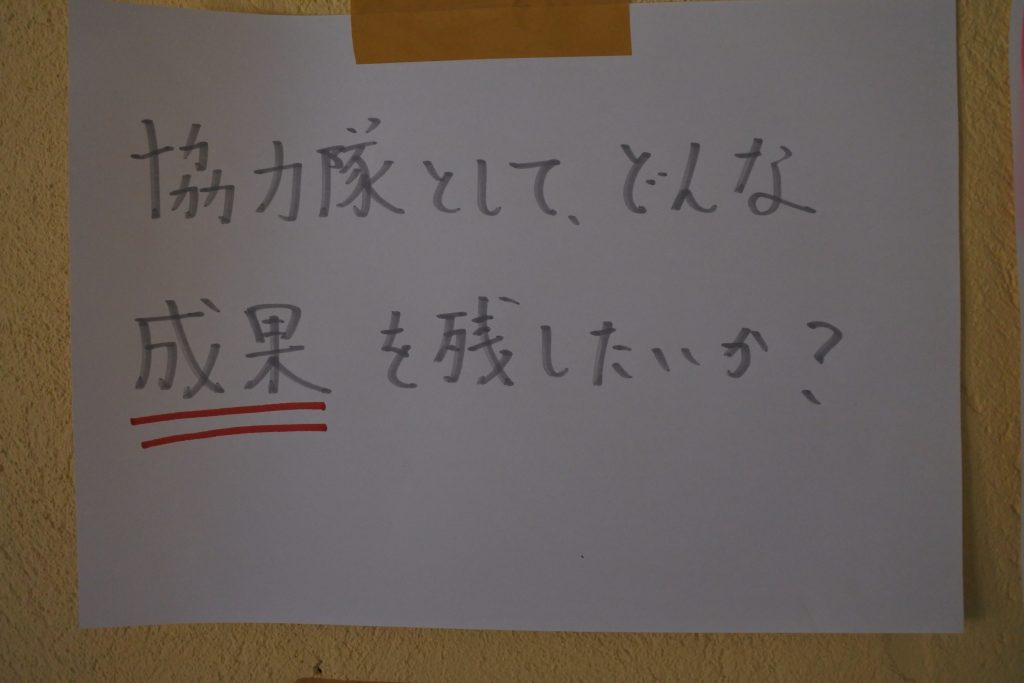 協力隊として、どんな
成果を残したいか?